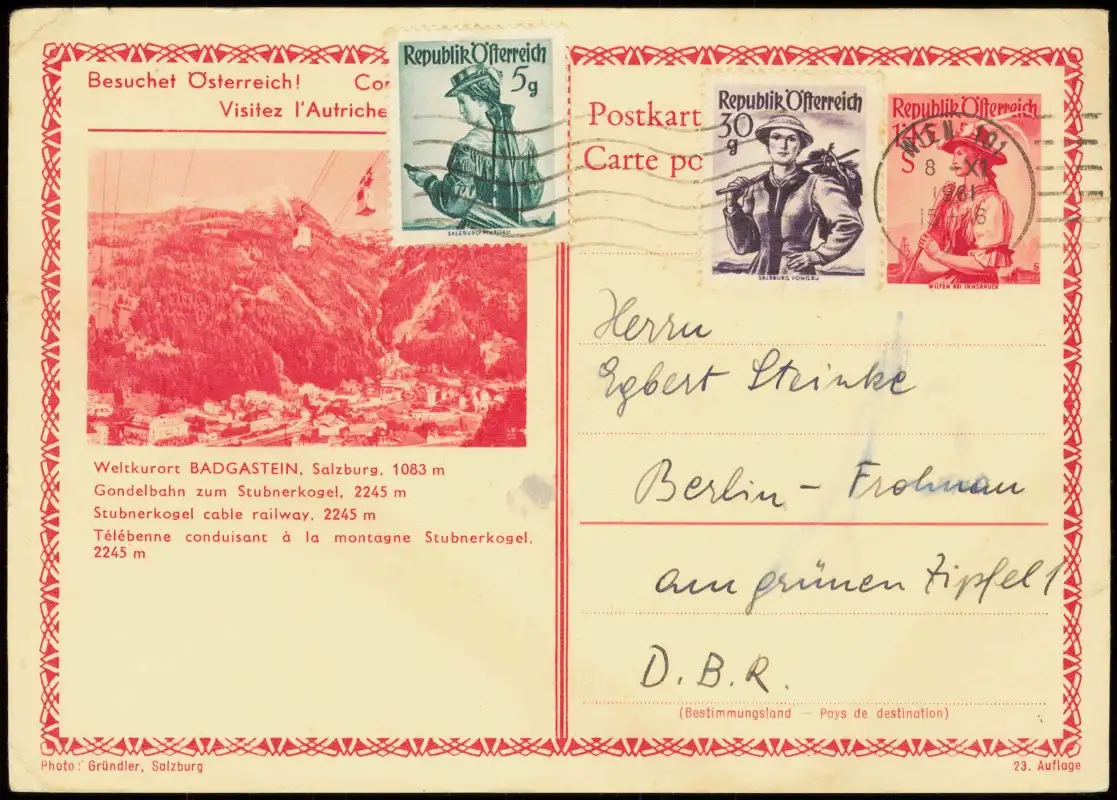 Besuchet Österreich! Co
Visitez l'Autriche
Republik Österreich
5g
SALZBURG PINZGAU
Postkart
Carte po
Republik Österreich
30
g
SALZBURG PONGAU
Republik Österreich
S
WILTEN BEI INNSBRUCK
WIEN 101
8 -XI
1961
Herrn
Egbert Steinke
Berlin - Frohnau
am grünen Zipfel 1
D.B.R.
(Bestimmungsland — Pays de destination)
Weltkurort BADGASTEIN, Salzburg, 1083 m
Gondelbahn zum Stubnerkogel, 2245 m
Stubnerkogel cable railway, 2245 m
Télébenne conduisant à la montagne Stubnerkogel,
2245 m
Photo: Gründler, Salzburg
23. Auflage